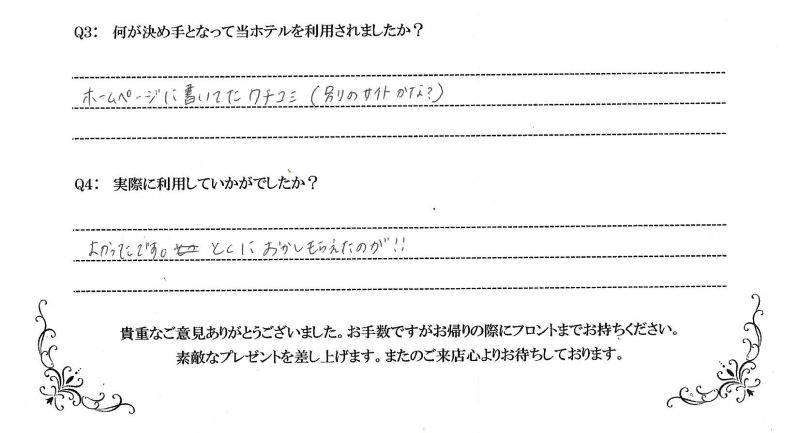 Q3: 何が決め手となって当ホテルを利用されましたか?
ホームページに書いてたクチコミ(別のサイトかな?)
Q4: 実際に利用していかがでしたか?
よかったです。とくにおかしもらえたのが!!
貴重なご意見ありがとうございました。お手数ですがお帰りの際にフロントまでお持ちください。
素敵なプレゼントを差し上げます。またのご来店心よりお待ちしております。